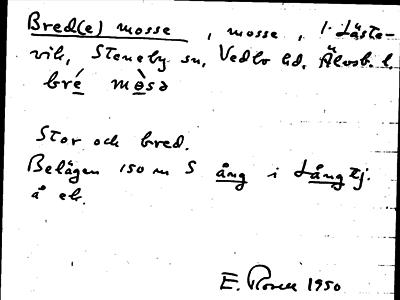 Bred(e) mosse, mosse, 1. Låste-
vik, Steneby sn, Vedbo hd, Älvsb. l.
bré mo̊sə
Stor och bred.
Belägen 150 m S ång i Långtj.
å ek.
E. Rosell 1950